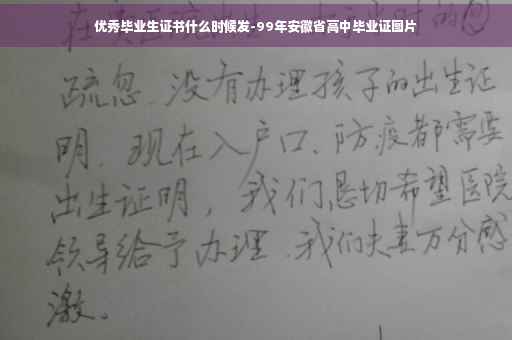 优秀毕业生证书什么时候发-99年安徽省高中毕业证图片
疏忽、没有办理孩子的出生证
明、现在入户口、防疫都需要
出生证明，我们恳切希望医院
领导给予办理、我们夫妻万分感
激。